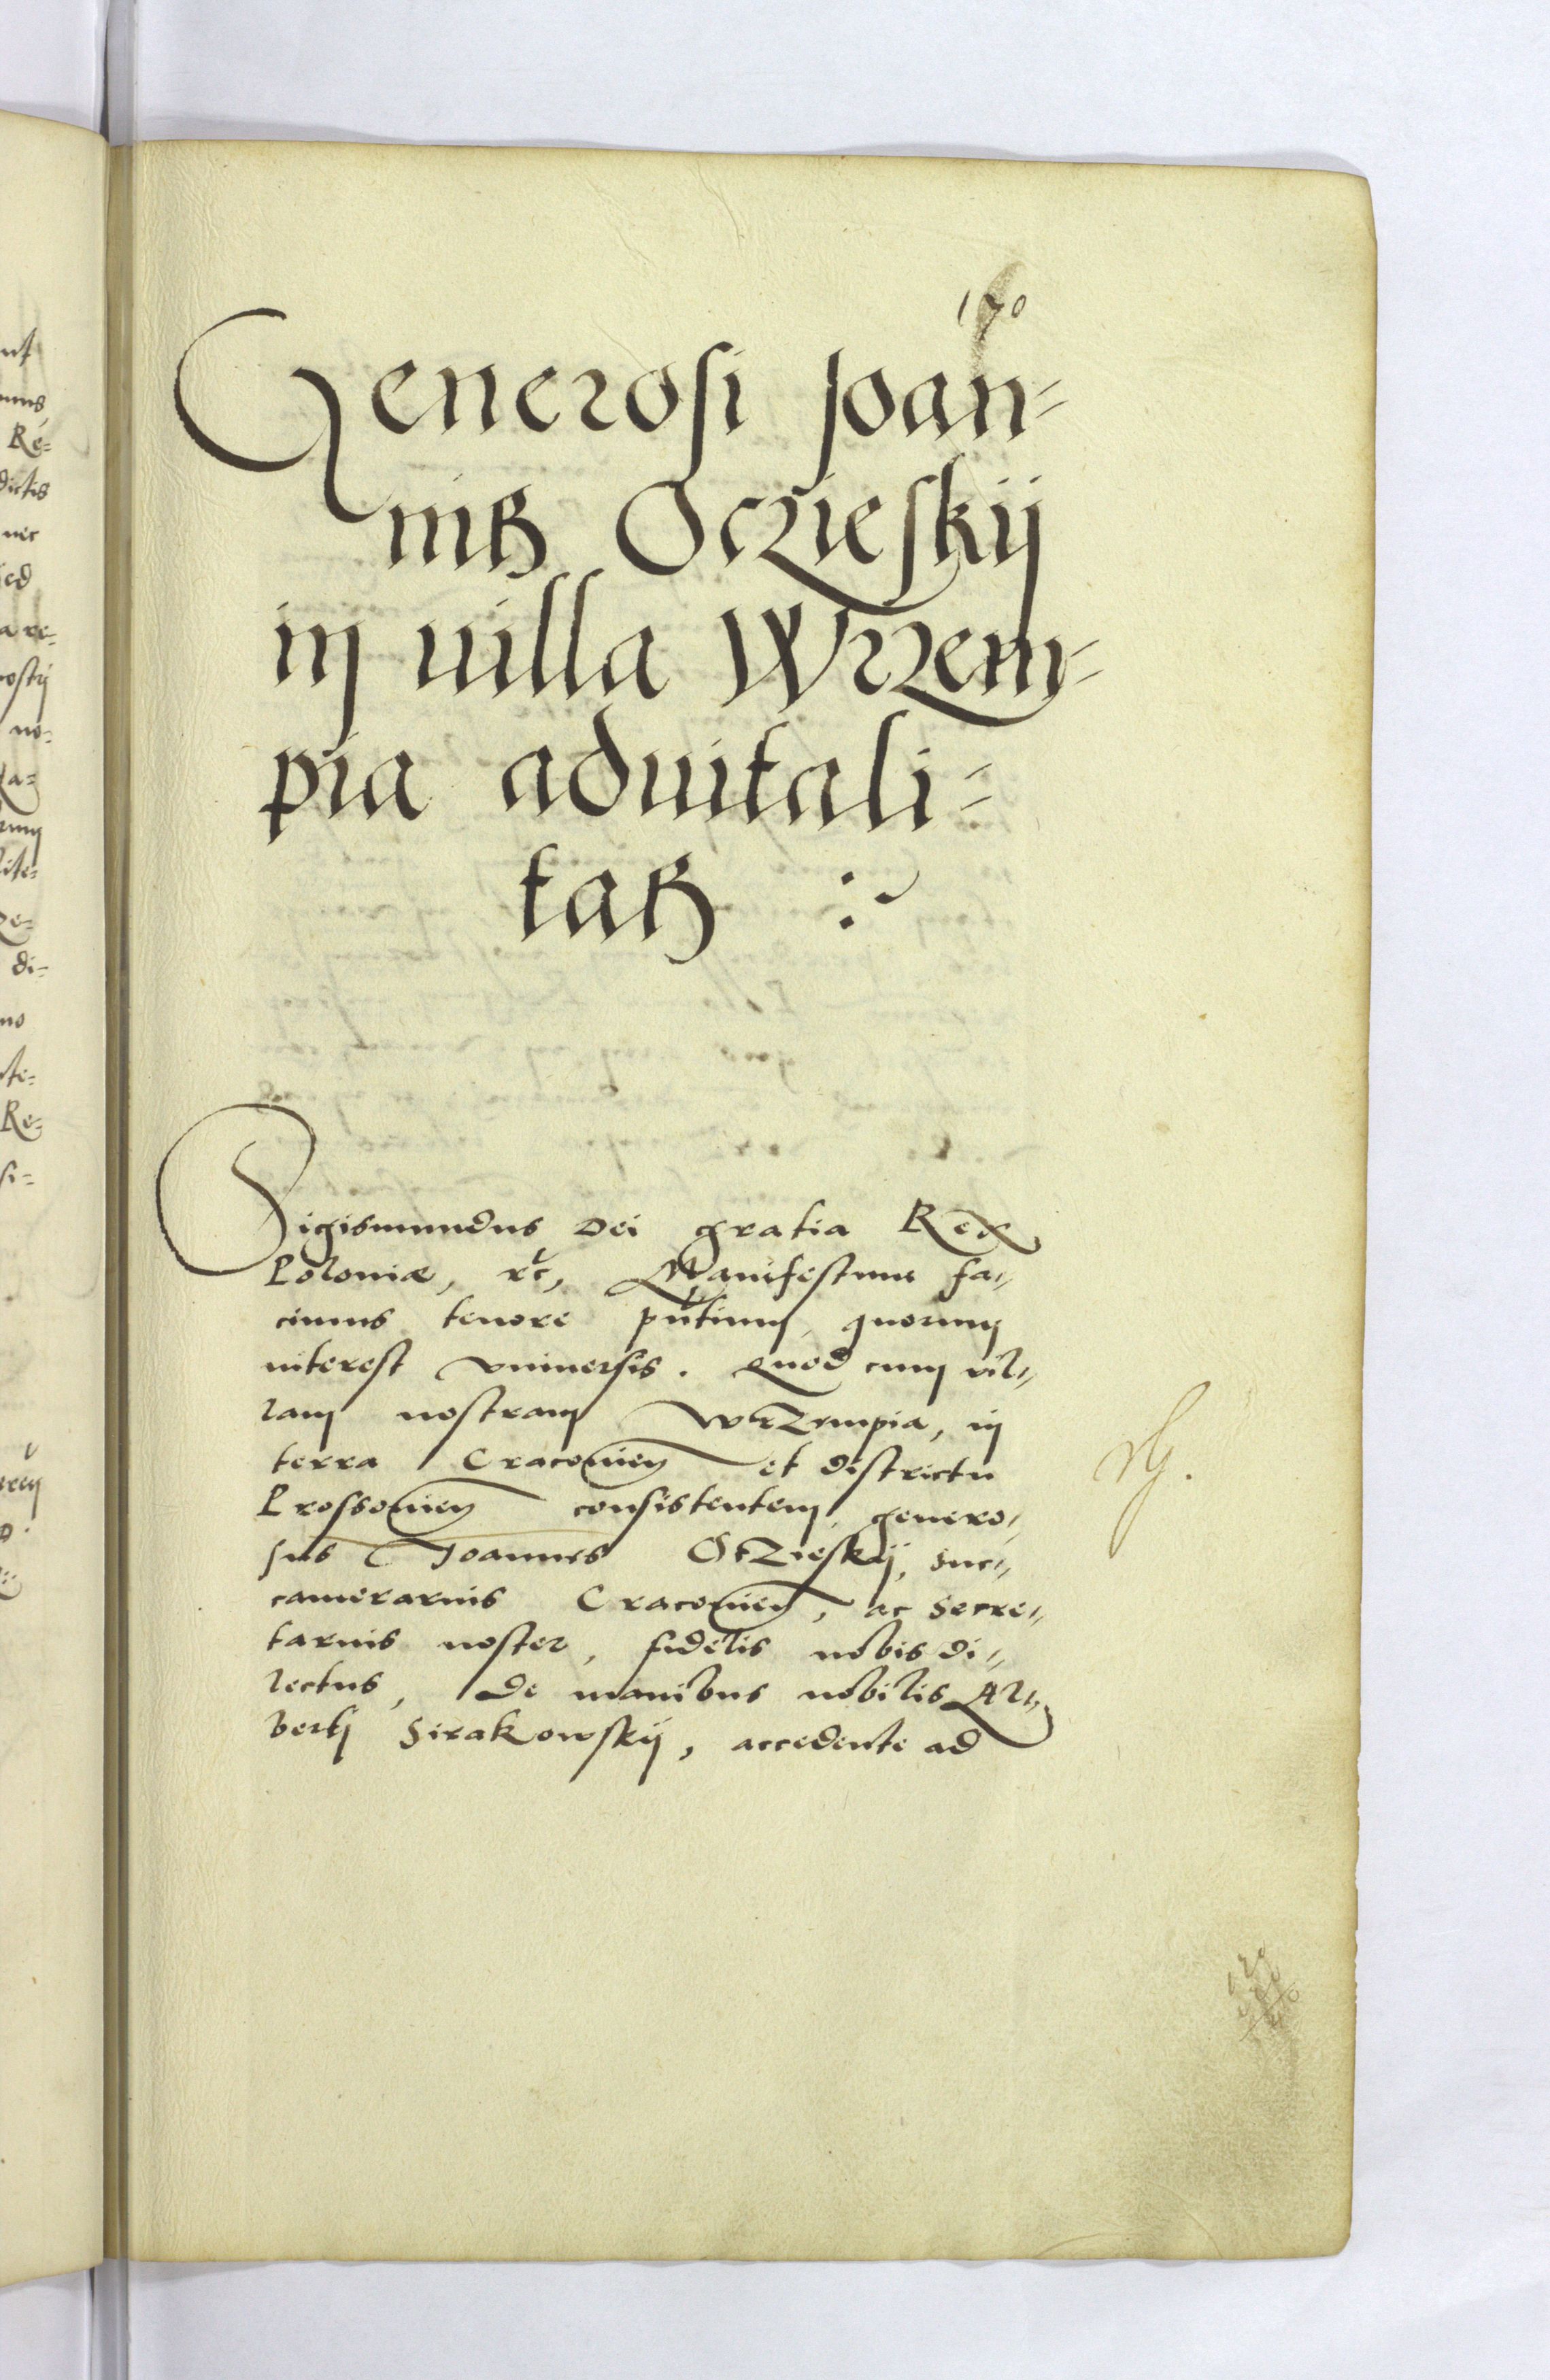 170
Generosi Joan=
nis Oczieskij
in uilla Wrzem=
pia aduitali=
tas :~
Sigismundus Dei gratia Rex
Poloniæ, rc̃, Manifestum fa„
cimus tenore pñtium, quorum
interest vniuersis. Quod cum vil„
lam nostram Wrzempia, in
terra Cracouien̄ et districtu
Prossouien̄ consistentem, genero„
sus Joannes Oczieskij, suc„
camerarius Cracouien̄, ac Secre„
tarius noster, fidelis nobis di„
lectus, de manibus nobilis Al„
bertj Sirakowskij, accedente ad